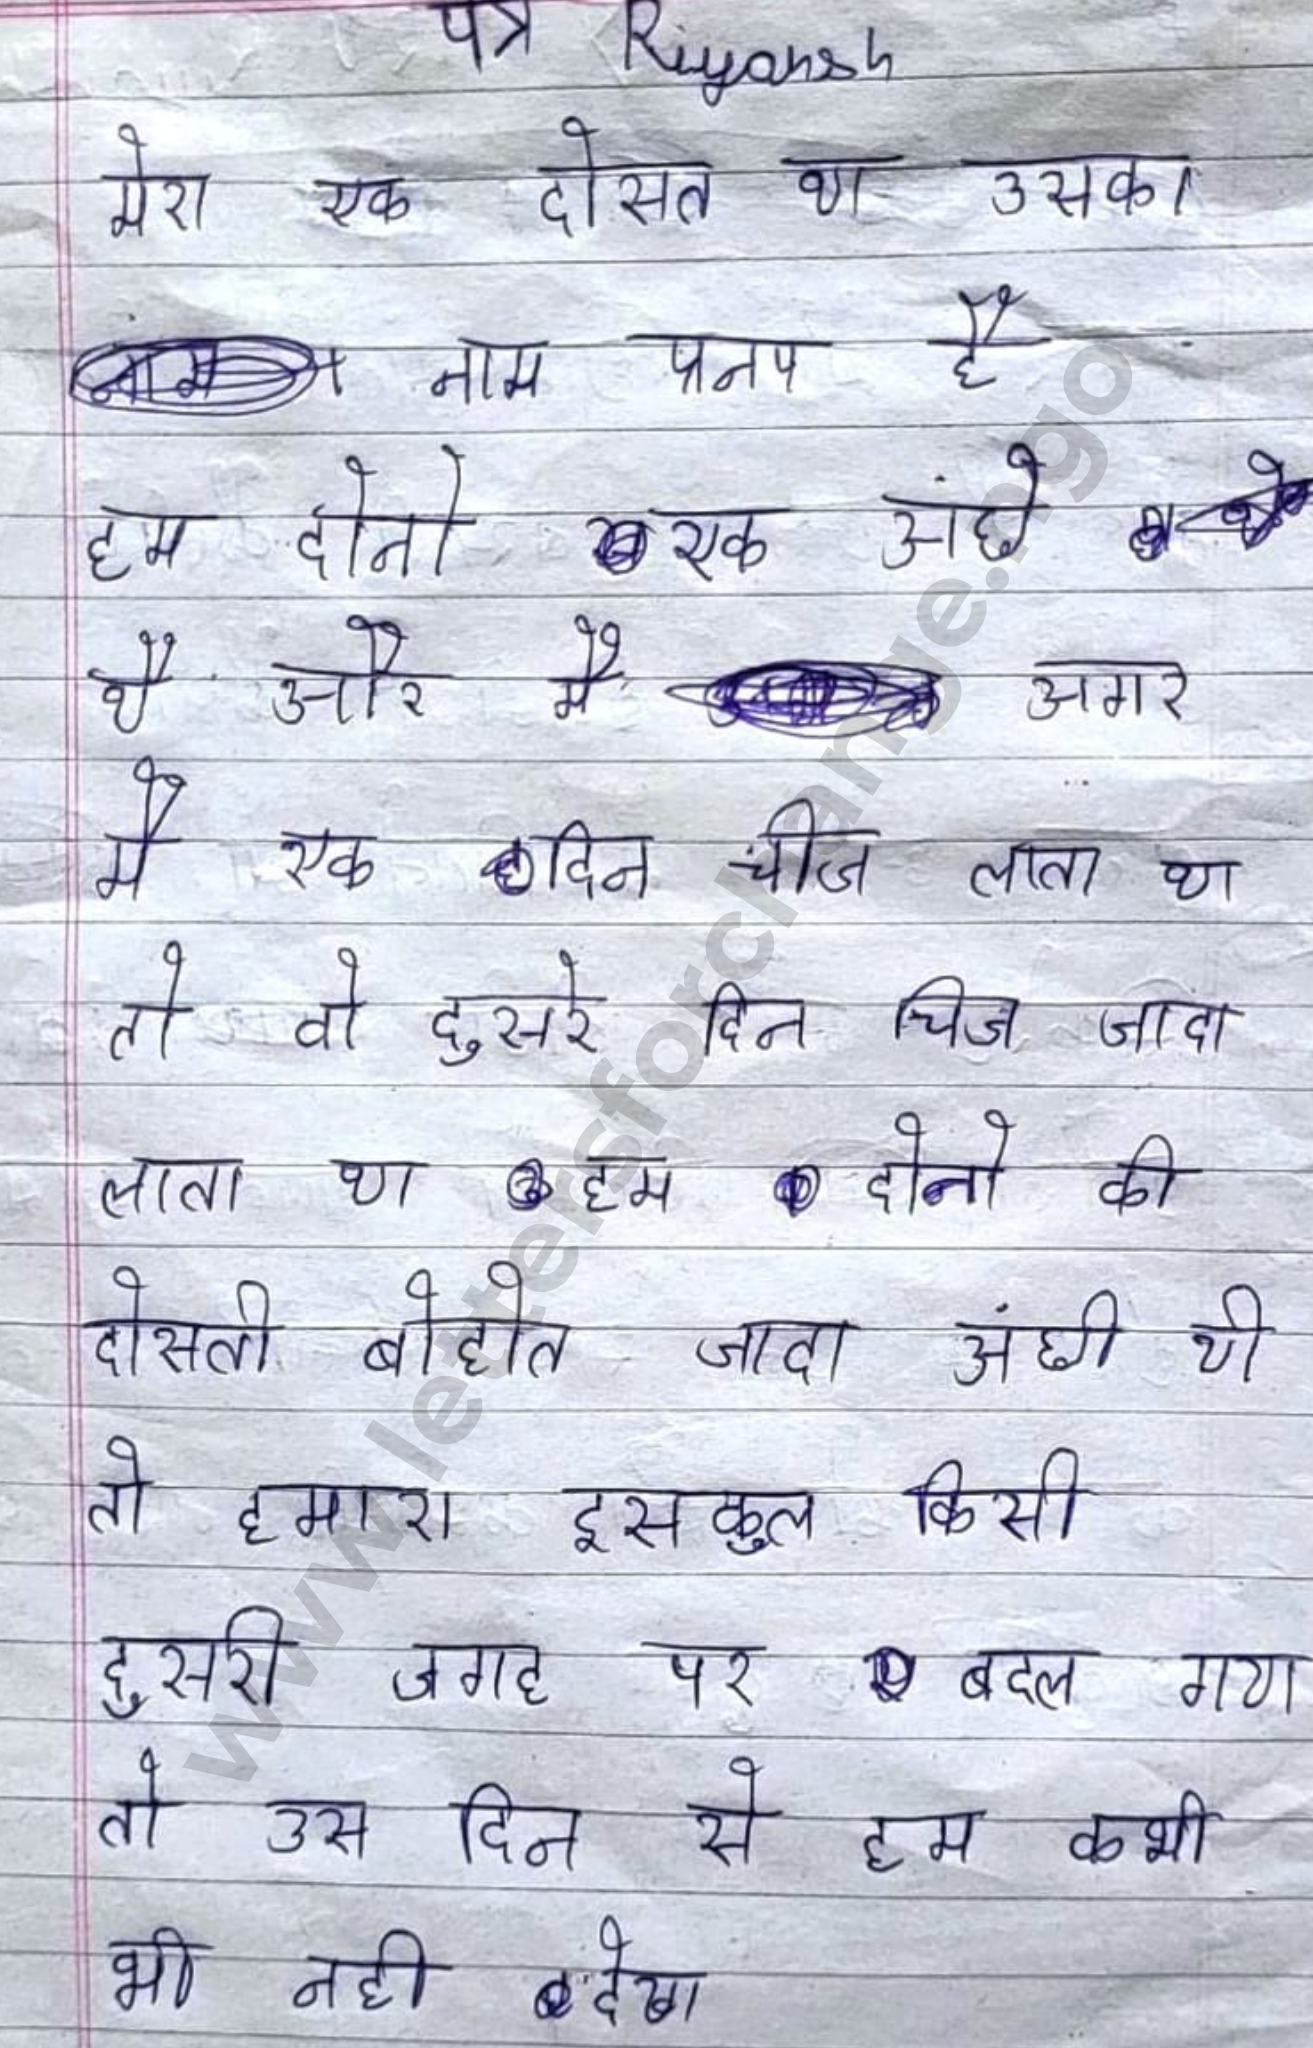 पत्र Riyansh
मेरा एक दोसत था उसका
नाम प्रनप है
हम दोनो एक अंछे
थे और मै अगर
मै एक दिन चीज लाता था
तो वो दुसरे दिन चिज जादा
लाता था हम दोनो की
दोसती बोहोत जादा अंछी थी
तो हमारा इसकुल किसी
दुसरी जगह पर बदल गया
तो उस दिन से हम कभी
भी नही देखा
www.lettersforchange.ngo